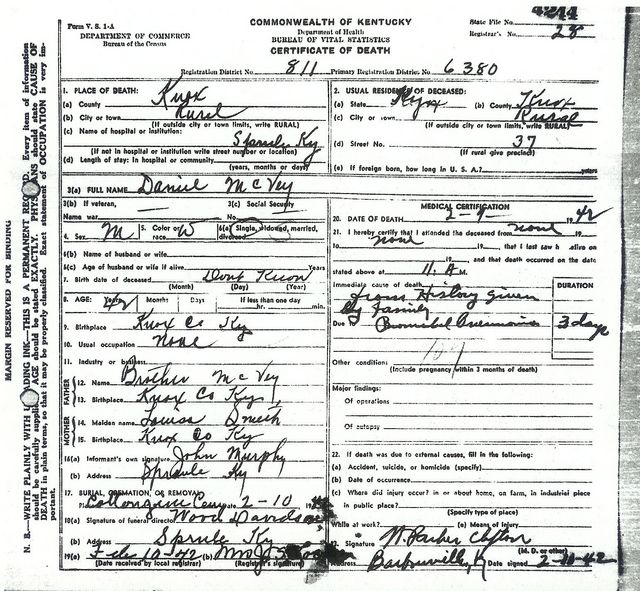 Form V. S. 1-A
DEPARTMENT OF COMMERCE
Bureau of the Census
COMMONWEALTH OF KENTUCKY
Department of Health
BUREAU OF VITAL STATISTICS
CERTIFICATE OF DEATH
State File No. 4244
Registrar's No. 28
Registration District No. 811 Primary Registration District No. 6380
MARGIN RESERVED FOR BINDING
N. B.—WRITE PLAINLY WITH UNFADING INK—THIS IS A PERMANENT RECORD. Every item of information
should be carefully supplied. AGE should be stated EXACTLY. PHYSICIANS should state CAUSE OF
DEATH in plain terms, so that it may be properly classified. Exact statement of OCCUPATION is very im-
portant.
1. PLACE OF DEATH:
(a) County Knox
(b) City or town Rural
(If outside city or town limits, write RURAL)
(c) Name of hospital or institution:
Sprule, Ky
(If not in hospital or institution write street number or location)
(d) Length of stay: In hospital or community
(years, months or days)
2. USUAL RESIDENCE OF DECEASED:
(a) State (b) County Knox
(c) City or town Rural
(If outside city or town limits, write RURAL)
(d) Street No. 37
(If rural give precinct)
(e) If foreign born, how long in U. S. A.? years
3(a) FULL NAME Daniel McVey
3(b) If veteran, Name war
3(c) Social Security No.
4. Sex M
5. Color or race W
6(a) Single, widowed, married, divorced
6(b) Name of husband or wife
6(c) Age of husband or wife if alive Years
7. Birth date of deceased Dont Know
(Month) (Day) (Year)
8. AGE: Years 42 Months Days If less than one day
hr. min.
9. Birthplace Knox Co Ky
10. Usual occupation None
11. Industry or business
FATHER
12. Name Brother McVey
13. Birthplace Knox Co Ky
MOTHER
14. Maiden name Louisa Smith
15. Birthplace Knox Co Ky
16(a) Informant's own signature John Murphy
(b) Address Sprule Ky
17. BURIAL, CREMATION, OR REMOVAL
Date 2-10
18(a) Signature of funeral director Wood Davidson
(b) Address Sprule Ky
19(a) Feb 10 - 42 (b)
(Date received by local registrar) (Registrar's signature)
MEDICAL CERTIFICATION
20. DATE OF DEATH 2-9- 1942
21. I hereby certify that I attended the deceased from none
to none 19, that I last saw h alive on
19, and that death occurred on the date
stated above at 11. A M.
Immediate cause of death DURATION
from History given
by family
Due Bronchial Pneumonia 3 days
107
Other condition:
(Include pregnancy within 3 months of death)
Major findings:
Of operations
Of autopsy
22. If death was due to external causes, fill in the following:
(a) Accident, suicide, or homicide (specify)
(b) Date of occurrence
(c) Where did injury occur? in or about home, on farm, in industrial place
in public place?
(Specify type of place)
While at work? (e) Means of injury
23. Signature W. Parker Clifton
(M. D. or other)
Address Barbourville, K Date signed 2-10-42